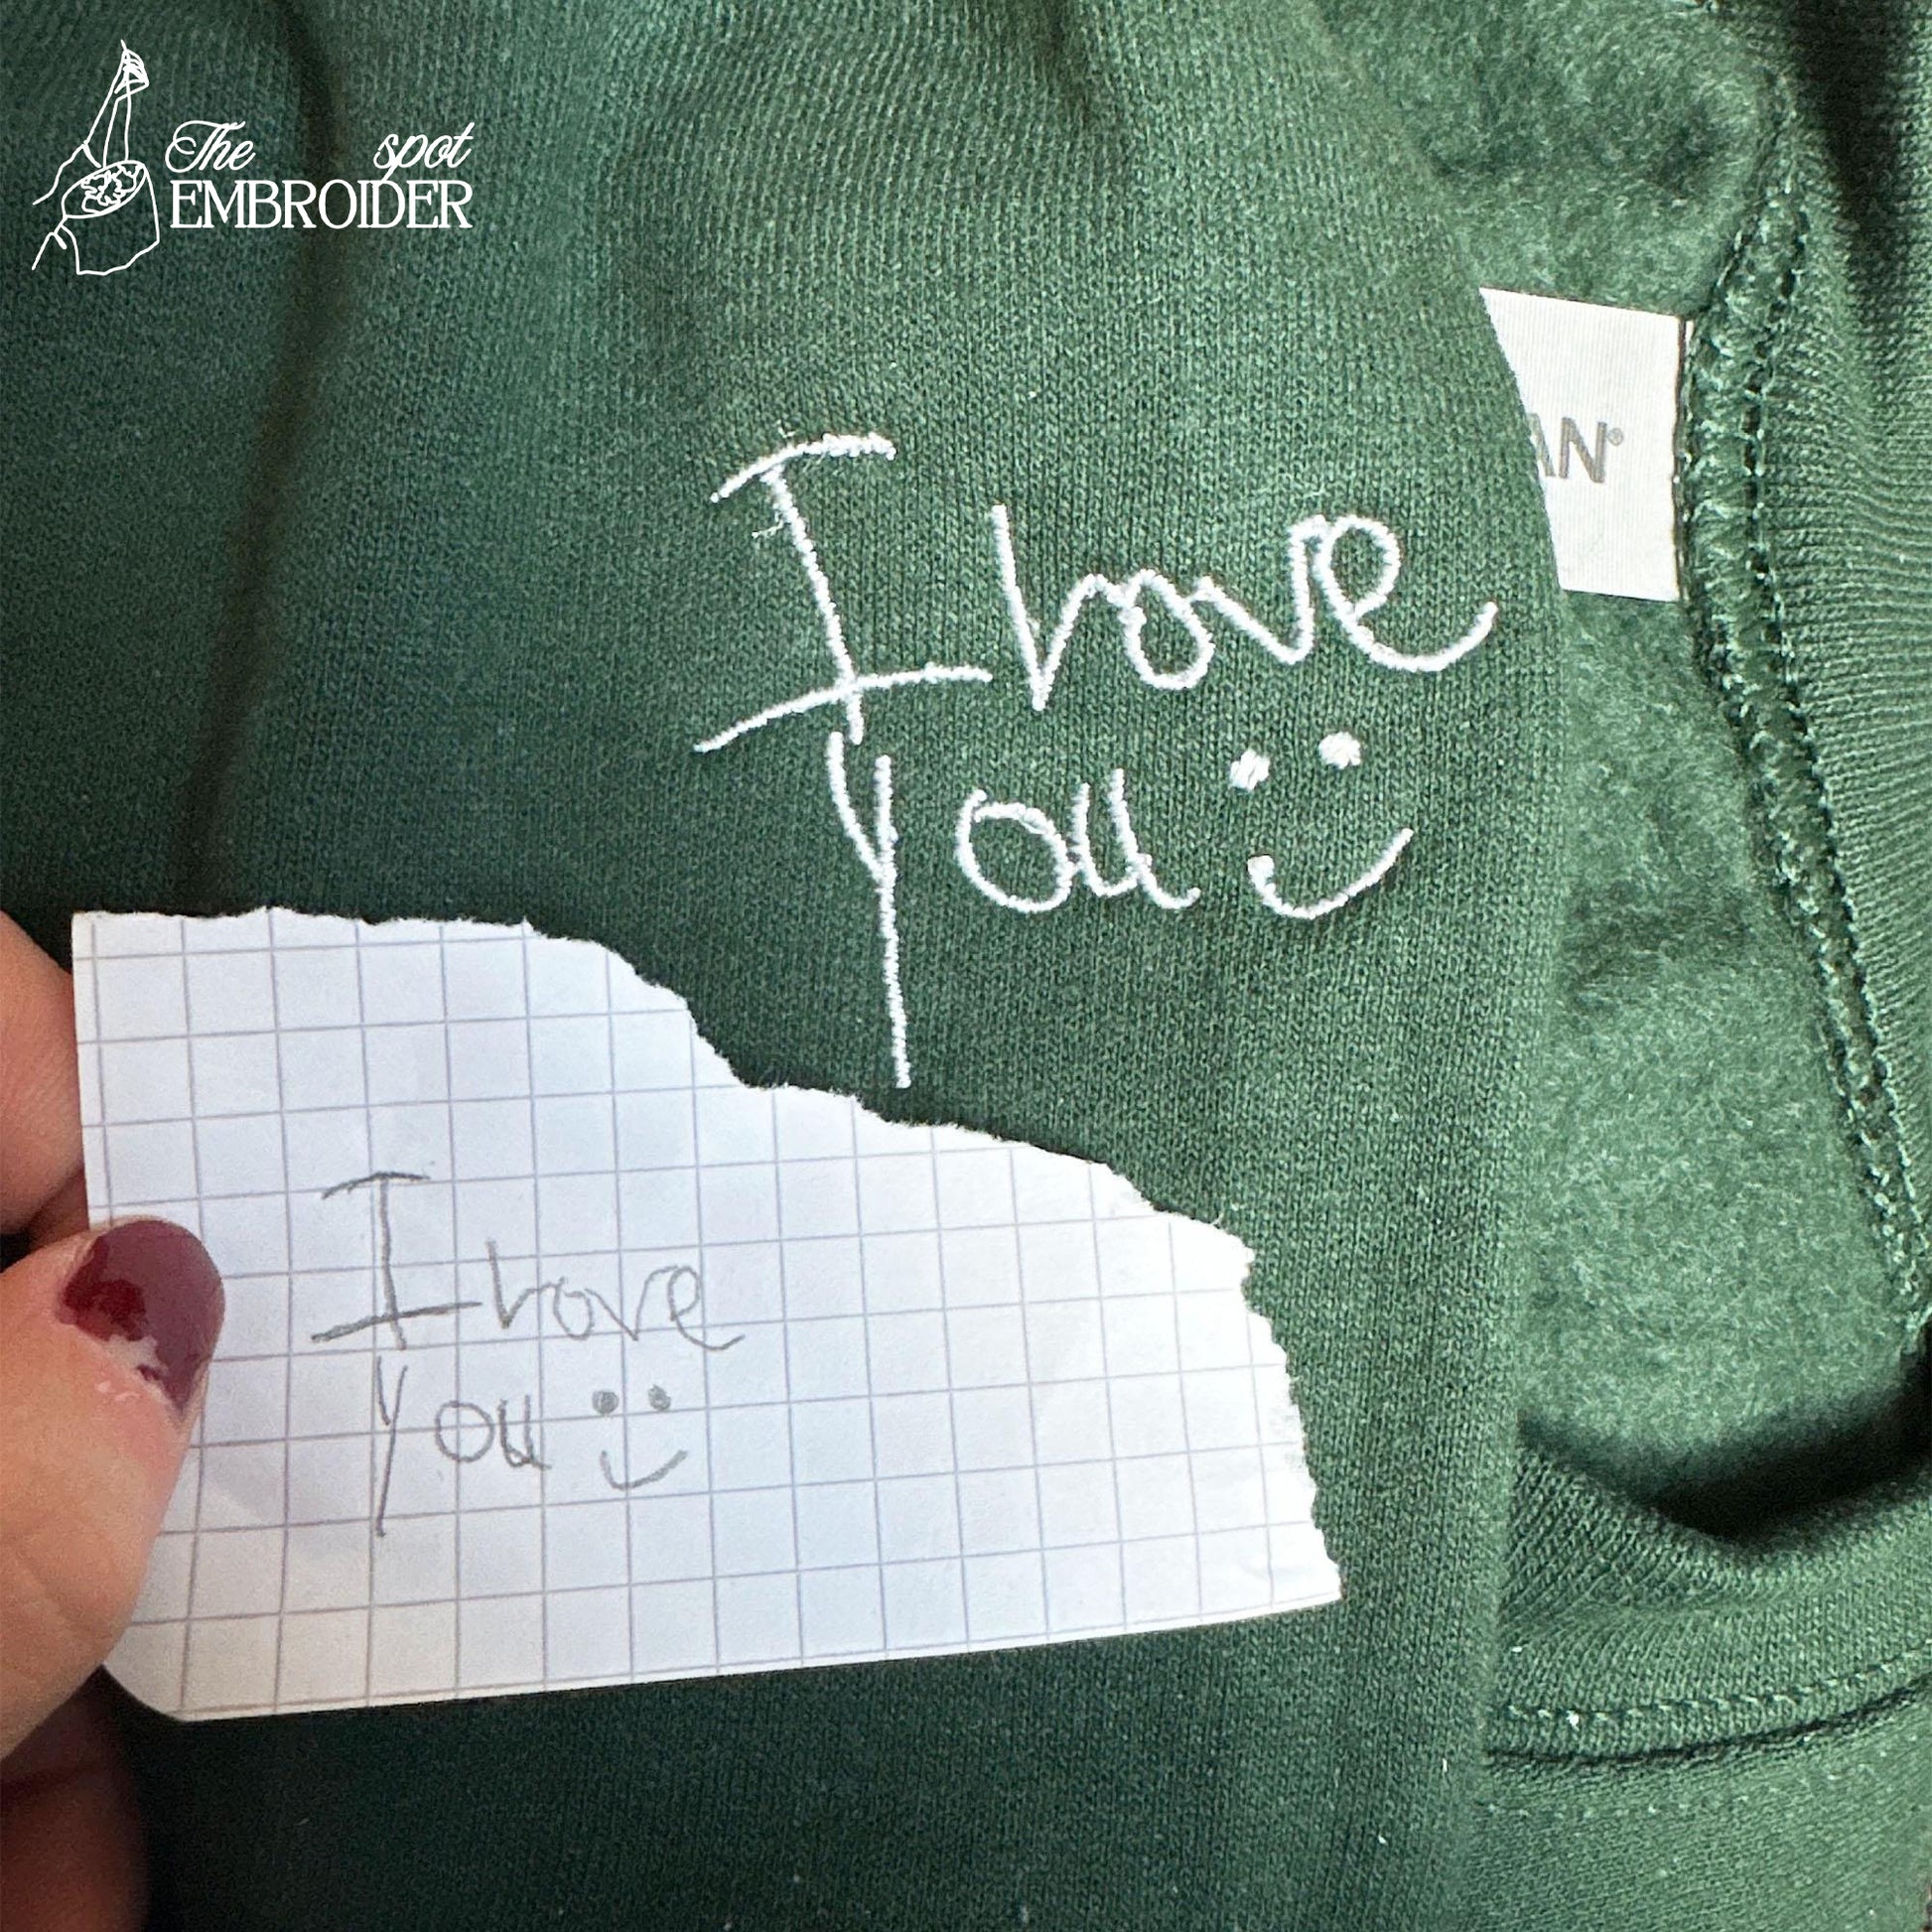 The spot
EMBROIDER
AN®
I love
you :)
I love
you :)